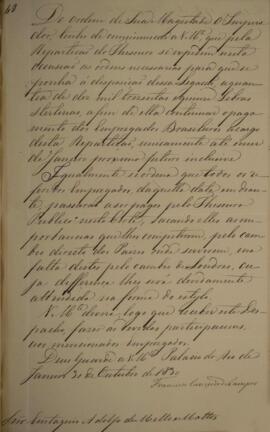 48
De ordem de Sua Magestade O Imperador
tenho de communicar a V. Mce. que pela
Repartição do Thesouro se expedem nesta
occasião as ordens necessarias para que se
ponha á disposição dessa Legação a quantia
de dez mil
Libras
sterlinas, a fim de ella continuar o pagamento
dos Empregados Brasileiros a cargo
desta Repartição, unicamente até o mez
de Janeiro proximo futuro inclusive
Igualmente se ordena que todos os referidos
Empregados, daquella data em diante,
passarão a ser pagos pelo Thesouro
Publico nesta Corte, sacando elles as importancias
que lhes competirem, pelo cambio
directo dos Paizes onde servirem, e na
falta destes pelo cambio de Londres, cuja
differença lhes será devidamente
abonada na forma do estylo.
V. Mce. deverá, logo que receber este Despacho,
fazer as devidas participações,
aos mencionados Empregados.
Deus Guarde a V. Mce. Palacio do Rio de
Janeiro 30 de Outubro de 1830
Francisco Carneiro de Campos
Snr. Eustaquio Adolfo de Mello e Mattos